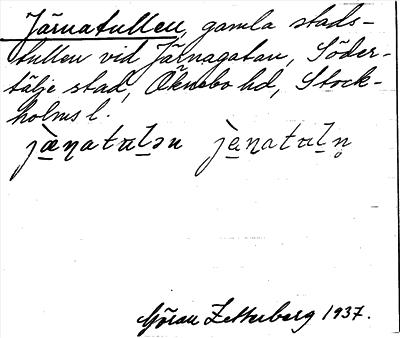 Järnatullen, gamla stads-
tullen vid Järnagatan, Söder-
tälje stad, Öknebo hd, Stock-
holms l.
jæ̀ṇatuḷən jèṇatuḷn̥
Göran Zetterberg 1937.